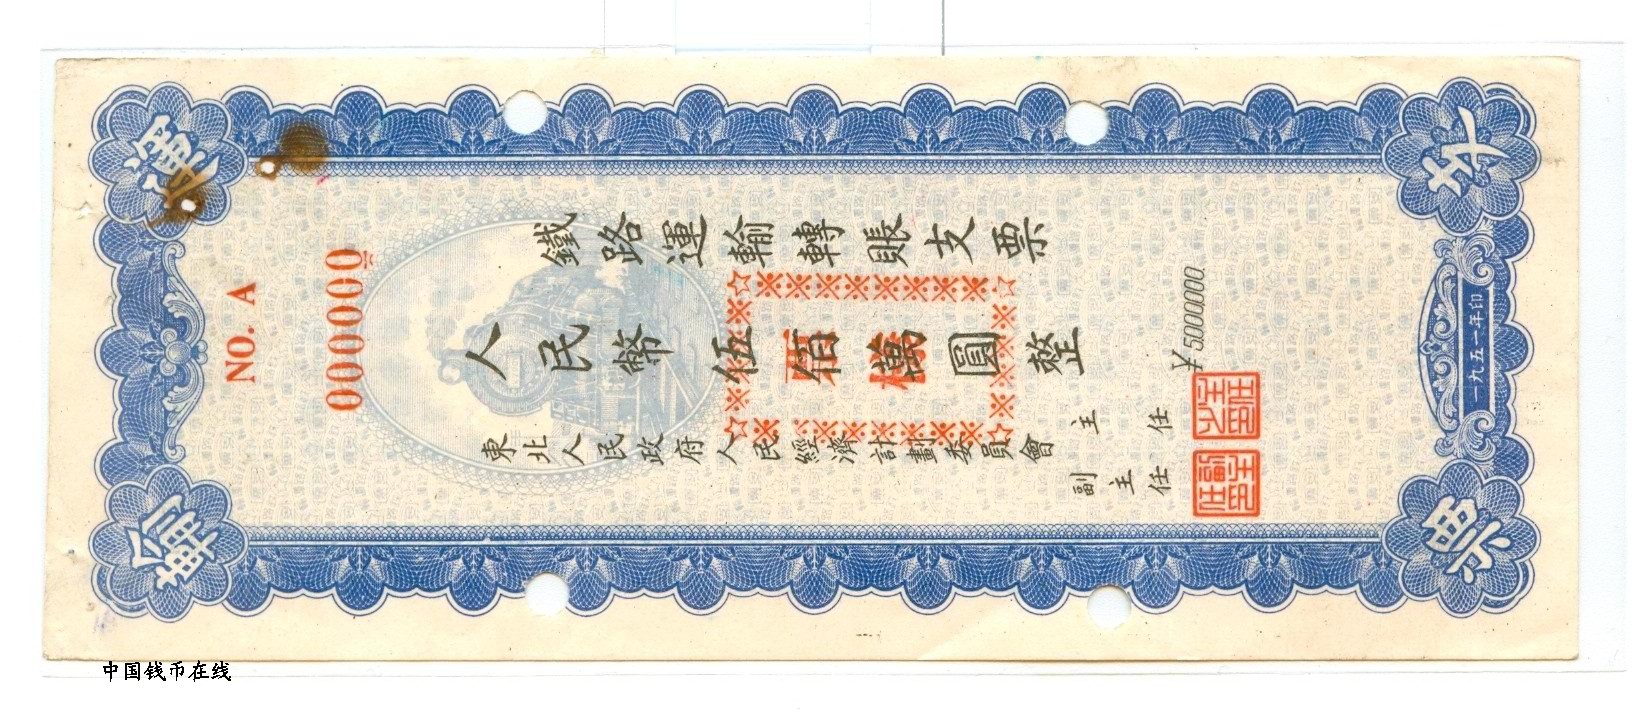 運
支
輸
票
NO. A
0000000
鐵路運輸轉賬支票
人民幣伍佰萬圓整
￥5,000,000.
東北人民政府人民經濟計劃委員會
主任
副主任
一九五一年印
中国钱币在线